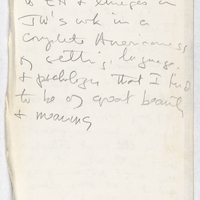 & images in
TW's work in a
complete Americanness
of setting, language,
& psychology that I find
to be of great beauty
& meaning